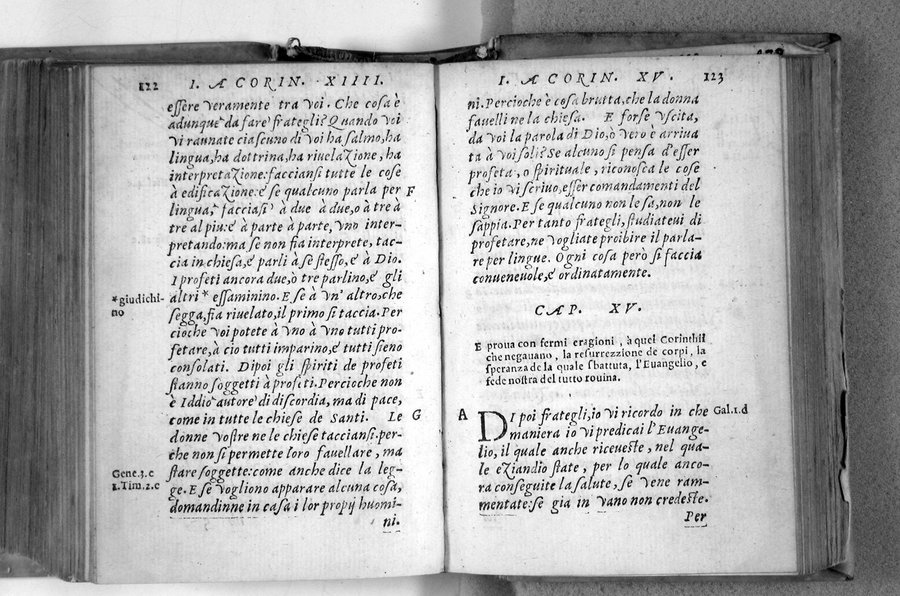 122 I. A CORIN. XIIII.
essere veramente tra voi. Che cosa è
adunque da fare frategli? Quando voi
vi raunate ciascuno di voi ha salmo, ha
lingua, ha dottrina, ha riuelazione, ha
interpretazione: facciansi tutte le cose
à edificazione. e se qualcuno parla per F
lingua, facciasi à due à due, o à tre à
tre al piu: e à parte à parte, vno inter-
pretando: ma se non fia interprete, tac-
cia in chiesa, e parli à se stesso, e à Dio.
I profeti ancora due, ò tre parlino, e gli
*giudichi- altri * essaminino. E se à vn' altro, che
no segga, fia riuelato, il primo si taccia. Per
cioche voi potete à vno à vno tutti pro-
fetare, à cio tutti imparino, e tutti sieno
consolati. Dipoi gli spiriti de profeti
stanno soggetti à profeti. Percioche non
è Iddio autore di discordia, ma di pace,
come in tutte le chiese de Santi. Le G
donne vostre ne le chiese tacciansi. per-
che non si permette loro fauellare, ma
Gene.3.c stare soggette: come anche dice la leg-
1.Tim.2.c ge. E se vogliono apparare alcuna cosa,
domandinne in casa i lor propij huomi-
ni.
I. A CORIN. XV. 123
ni. Percioche è cosa brutta, che la donna
fauelli ne la chiesa. E forse vscita,
da voi la parola di Dio, ò vero è arriua
ta à voi soli? Se alcuno si pensa d'esser
profeta, o spirituale, riconosca le cose
che io vi scriuo, esser comandamenti del
Signore. E se qualcuno non le sa, non le
sappia. Per tanto frategli, studiateui di
profetare, ne vogliate proibire il parla-
re per lingue. Ogni cosa però si faccia
conueneuole, e ordinatamente.
CAP. XV.
E proua con fermi eragioni, à quei Corinthii
che negauano, la resurrezzione de corpi, la
speranza de la quale sbattuta, l'Euangelio, e
fede nostra del tutto rouina.
A DI poi frategli, io vi ricordo in che Gal.1.d
maniera io vi predicai l'Euange-
lio, il quale anche riceueste, nel qua-
le eziandio state, per lo quale anco-
ra conseguite la salute, se vene ram-
mentate: se gia in vano non credeste.
Per